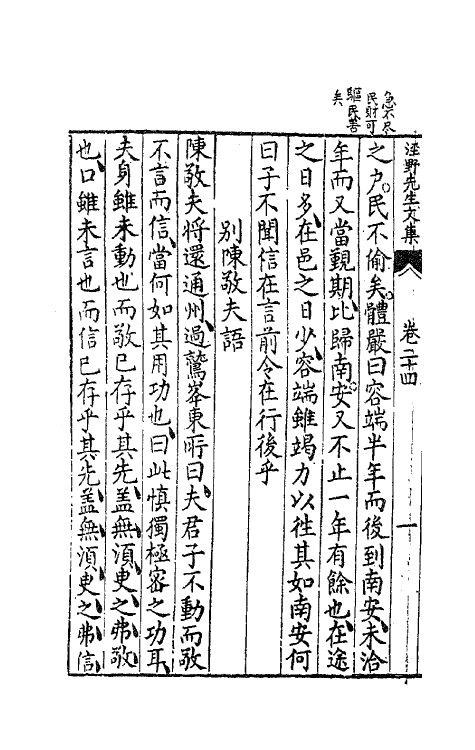 急不尽
民財可
驅民善
矣
涇野先生文集
卷二十四
一
之戶民不偷矣體嚴曰容端半年而後到南安未洽
年而又當覲期比歸南安又不止一年有餘也在途
之日多在邑之日少容端雖竭力以徃其如南安何
曰子不聞信在言前令在行後乎
別陳敬夫語
陳敬夫將還通州過鷲峯東所曰夫君子不動而敬
不言而信當何如其用功也曰此慎獨極密之功耳
夫身雖未動也而敬已存乎其先盖無須臾之弗敬
也口雖未言也而信已存乎其先盖無須臾之弗信